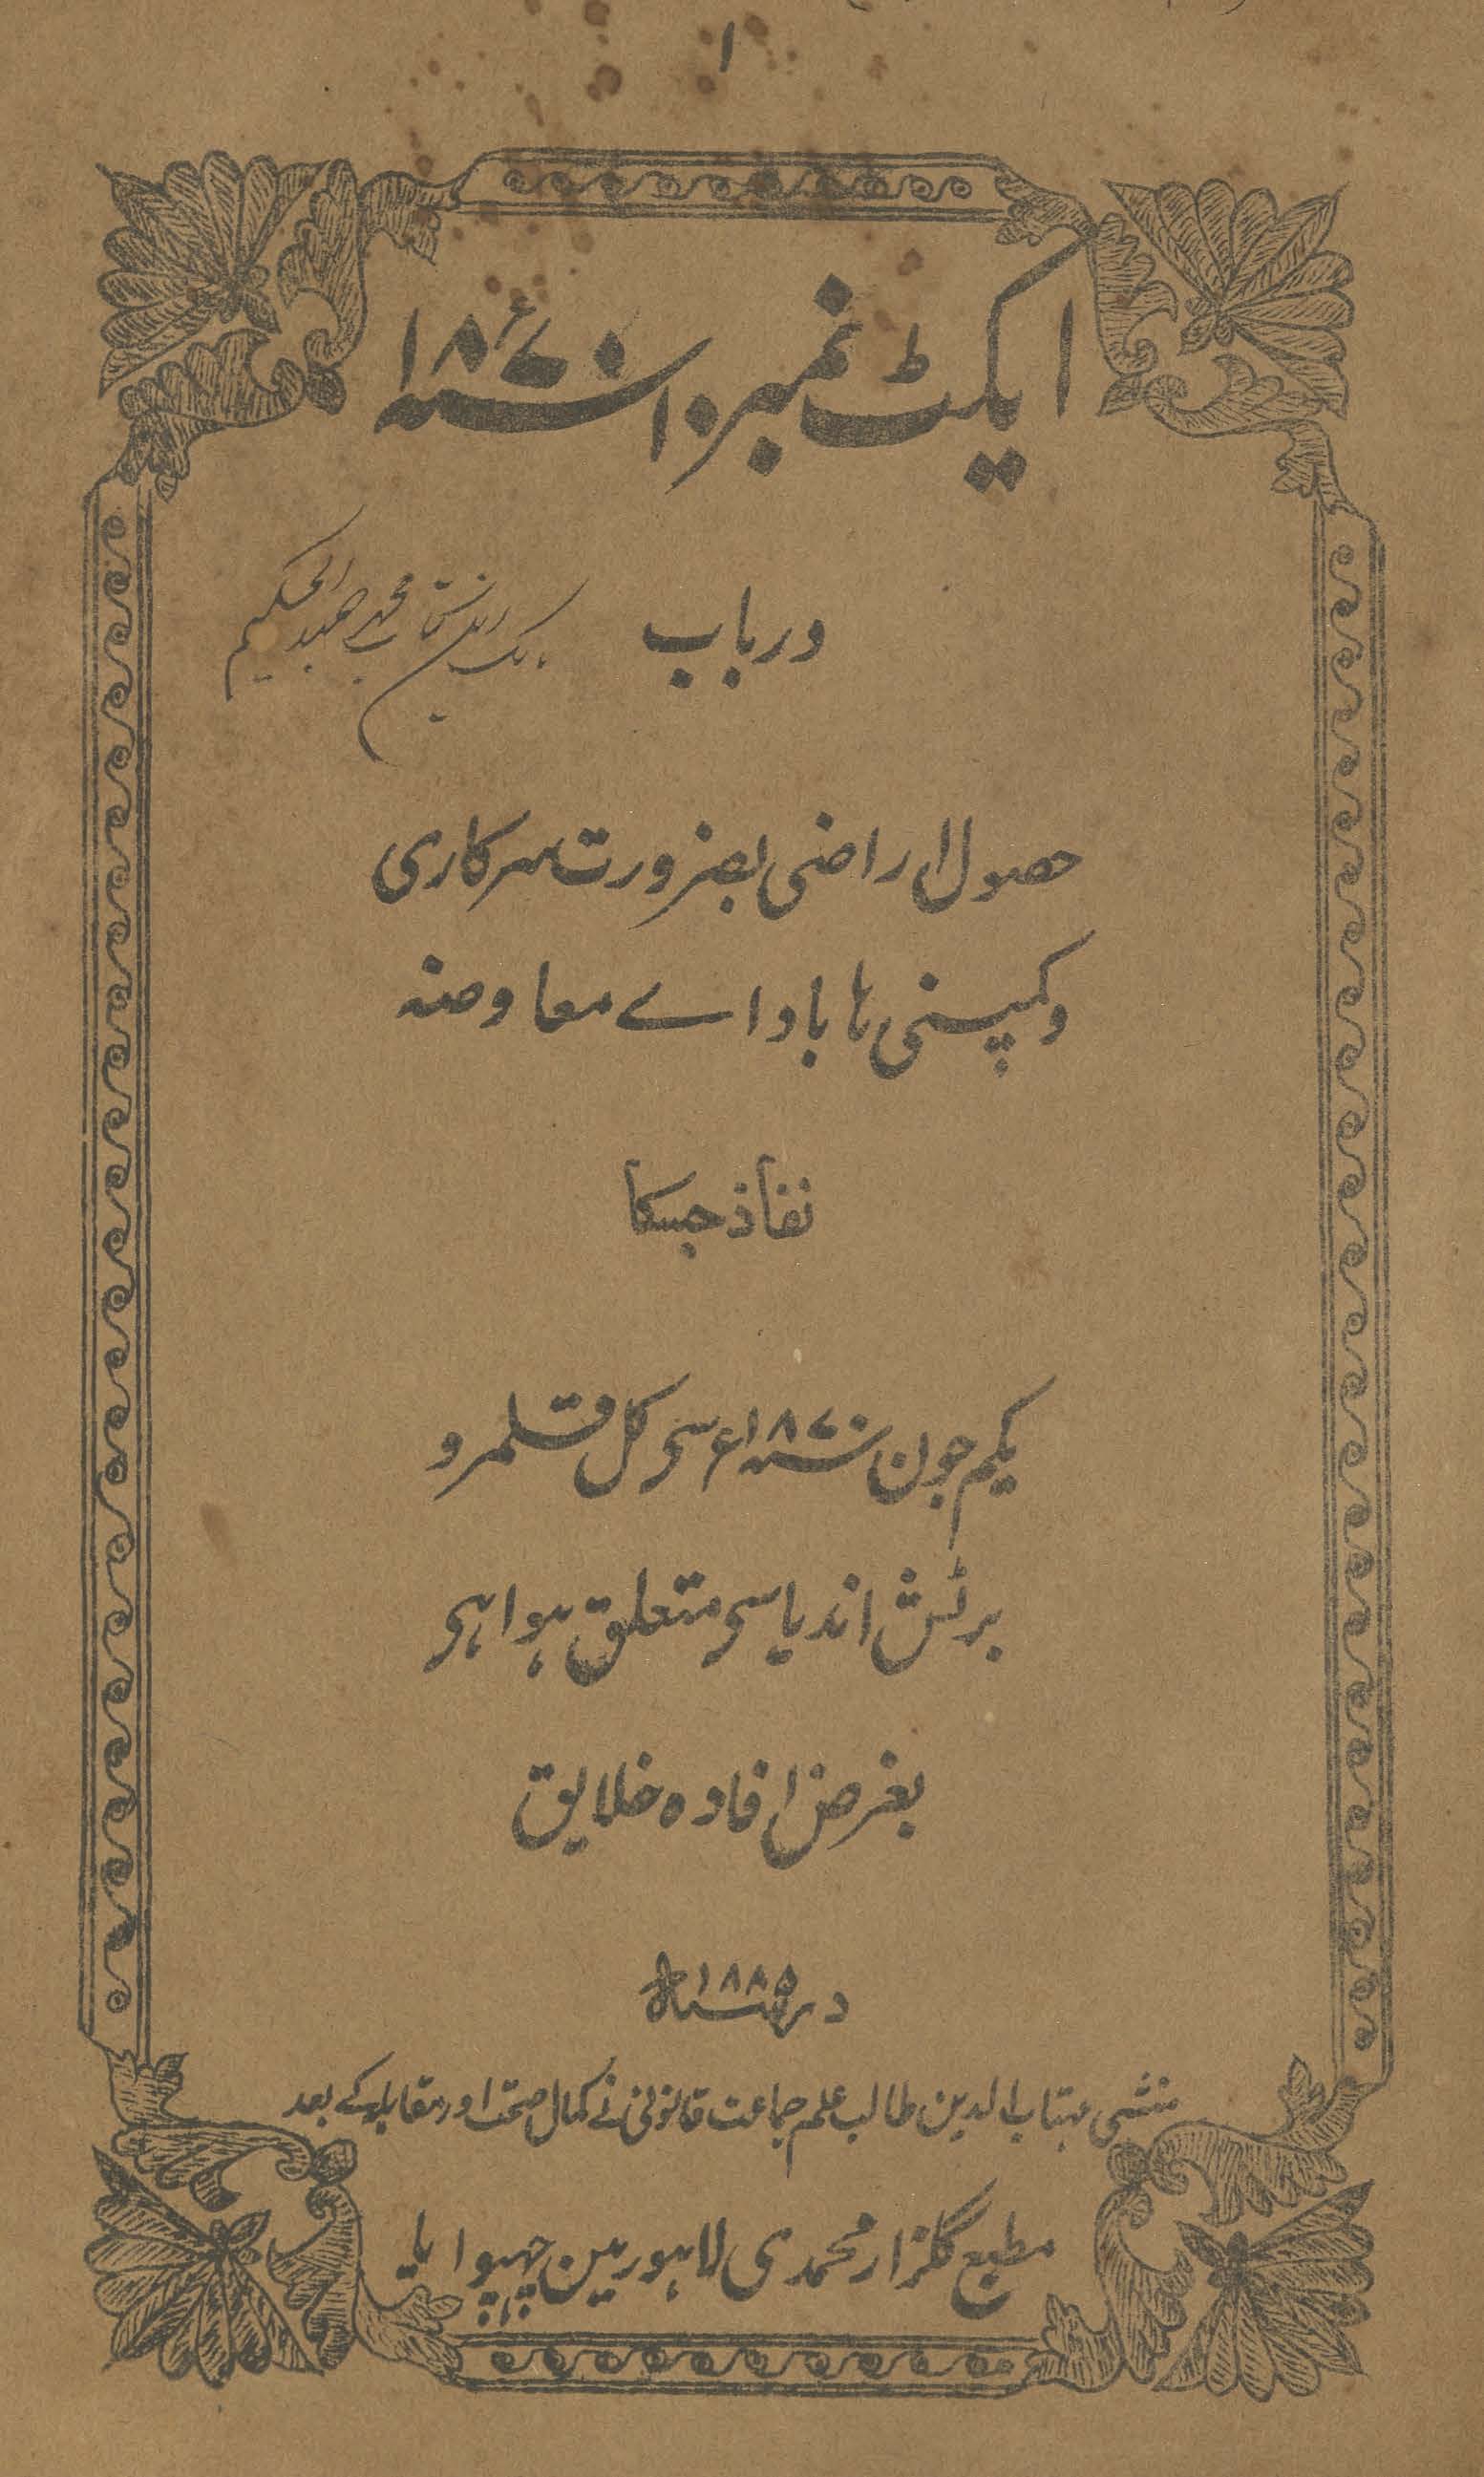 ۱
ایکٹ نمبر ۱۰ سنہ ۱۸۷۰ء
درباب
محمد عبد الحکیم
حصول اراضی بضرورت سرکاری
و کمپنی ہا باداے معاوضہ
نفاذ جسکا
یکم جون سنہ ۱۸۷۰ء سے کل قلمرو
برٹش اندیا سے متعلق ہوا ہی
بغرض افادہ خلایق
در سنہ ۱۸۸۵
منشی مہتاب الدین طالب علم جماعت قانونی نے کمال صحت اور مقابلہ کے بعد
مطبع گلزار محمدی لاہور مین چہپوایا